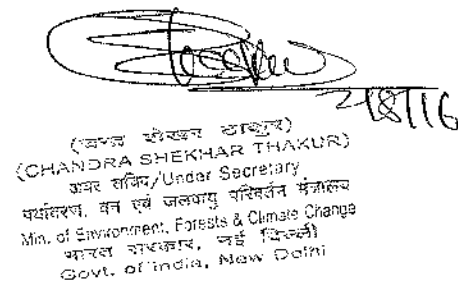 2/8/16
(चन्द्र शेखर ठाकुर)
(CHANDRA SHEKHAR THAKUR)
अवर सचिव/Under Secretary
पर्यावरण, वन एवं जलवायु परिवर्तन मंत्रालय
Min. of Environment, Forests & Climate Change
भारत सरकार, नई दिल्ली
Govt. of India, New Delhi